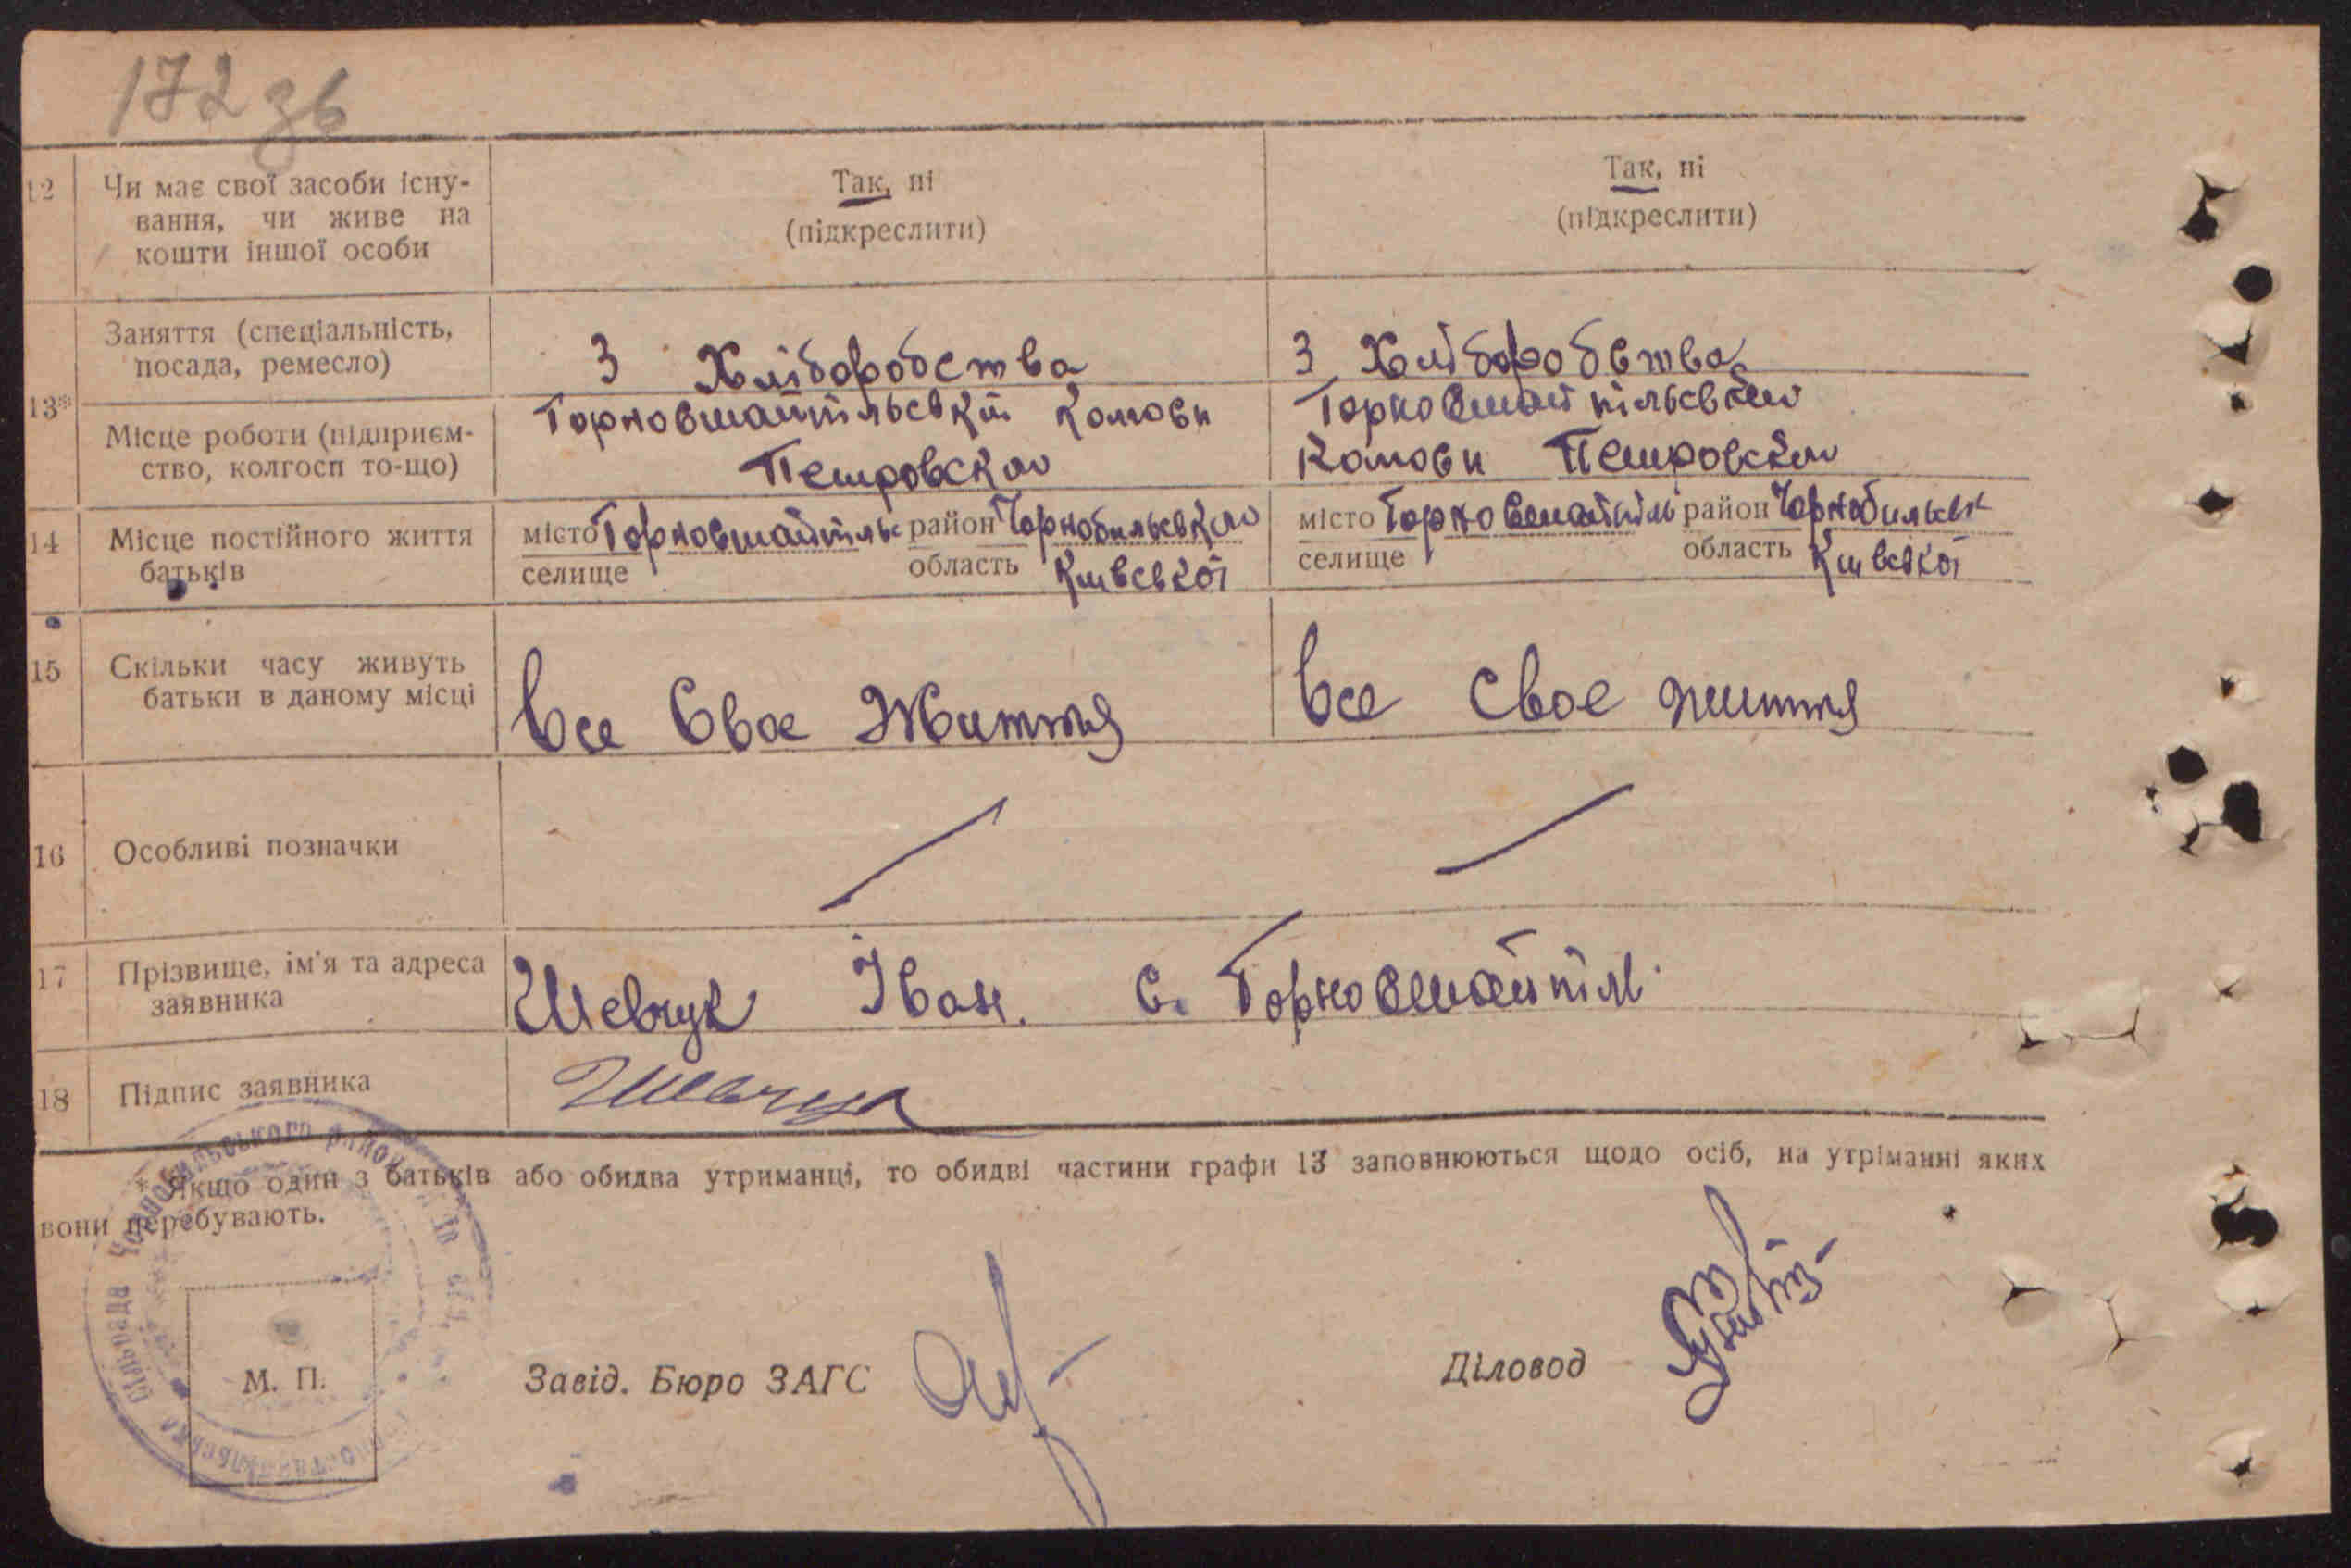 172 зв
12 Чи має свої засоби існу- Так, ні Так, ні
вання, чи живе на (підкреслити) (підкреслити)
кошти іншої особи
Заняття (спеціальність, З Хліборобства З Хліборобства
посада, ремесло)
13* Торновшайпільській Торновшайпільський
Місце роботи (підприєм-
ство, колгосп то-що) Петровского Петровского
14 Місце постійного життя місто Торновшайпіль район Чорнобильського місто Торновшайпіль район Чорнобильськ
батьків селище область Київської селище область Київської
15 Скільки часу живуть
батьки в даному місці Все Своє Життя Все Своє життя
16 Особливі позначки
17 Прізвище, ім'я та адреса Шевчук Іван. С. Горновшайпіль
заявника
18 Підпис заявника Шевчук
* Якщо один з батьків або обидва утриманці, то обидві частини графи 13 заповнюються щодо осіб, на утріманні яких
вони перебувають.
М. П. Завід. Бюро ЗАГС Діловод
Сільрада Чорнобильського району